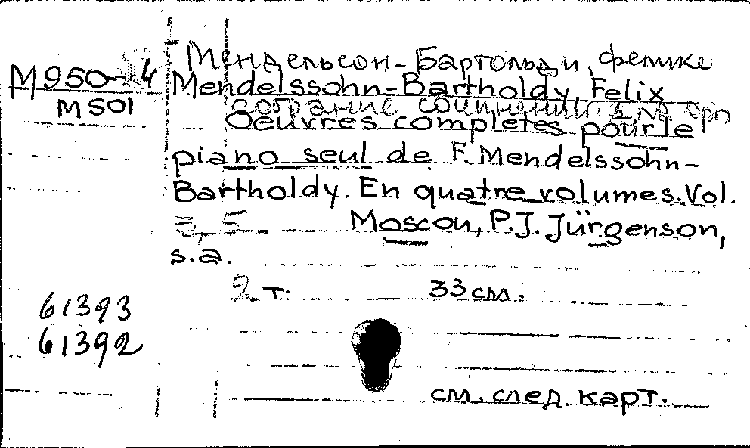 Мендельсон-Бартольди, Феликс
М950-14 Mendelssohn-Bartholdy, Felix
М501 собрание сочинений для фп
Oeuvres complètes pour le
piano seul de F. Mendelssohn-
Bartholdy. En quatre volumes. Vol.
5 Moscou, P.J. Jürgenson,
s.a.
2 т. 33 см.
61393
61392
см. след. карт.